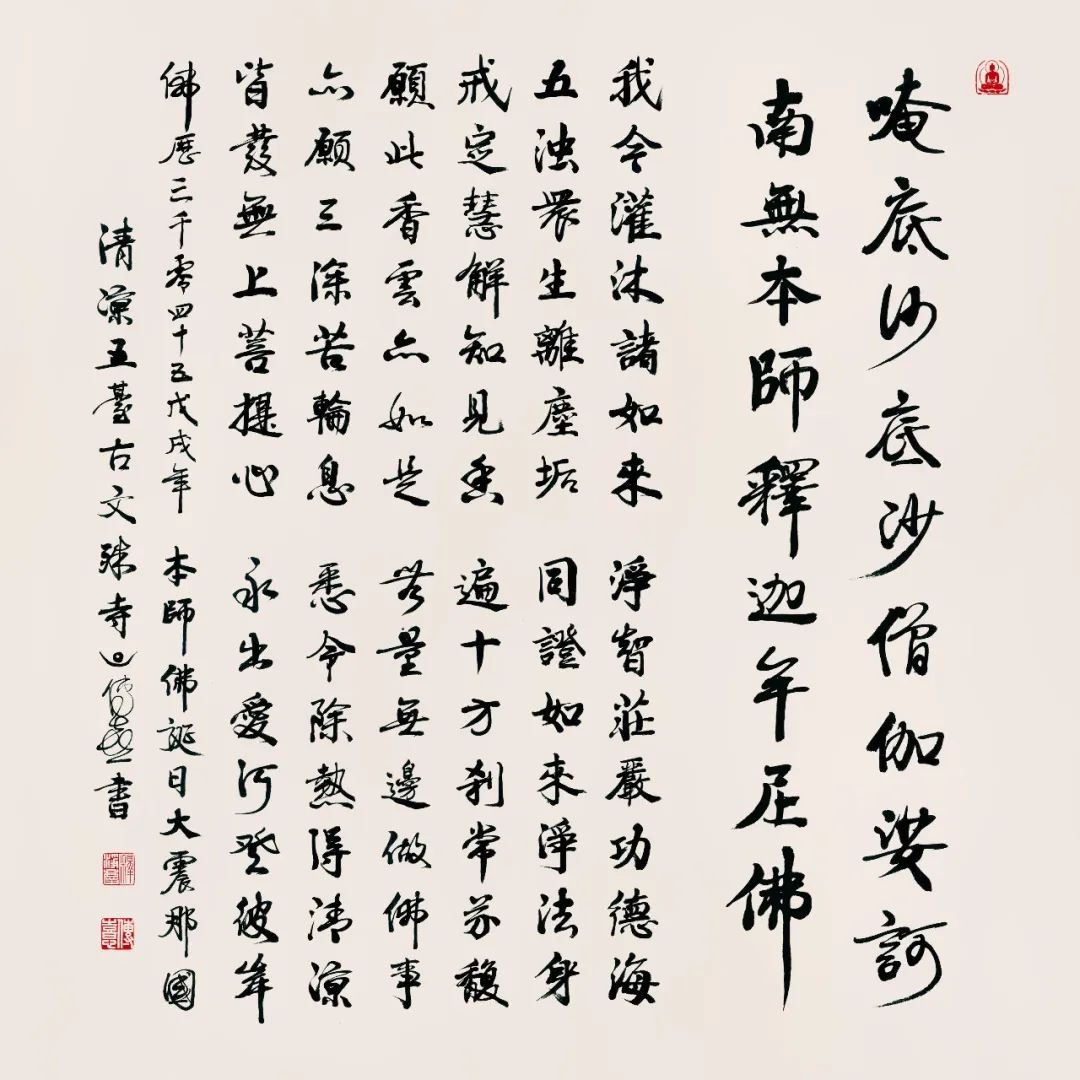 唵底沙底沙僧伽娑訶
南無本師釋迦牟尼佛
我今灌沐諸如來 淨智莊嚴功德海
五浊眾生離塵垢 同證如來淨法身
戒定慧解知見香 遍十方刹常芬馥
願此香雲亦如是 無量無邊做佛事
亦願三涂苦輪息 悉令除熱得清凉
皆發無上菩提心 永出愛河登彼岸
佛歷三千零四十五戊戌年 本師佛誕日大震那國
清凉五臺古文殊寺 傳喜書
傳喜